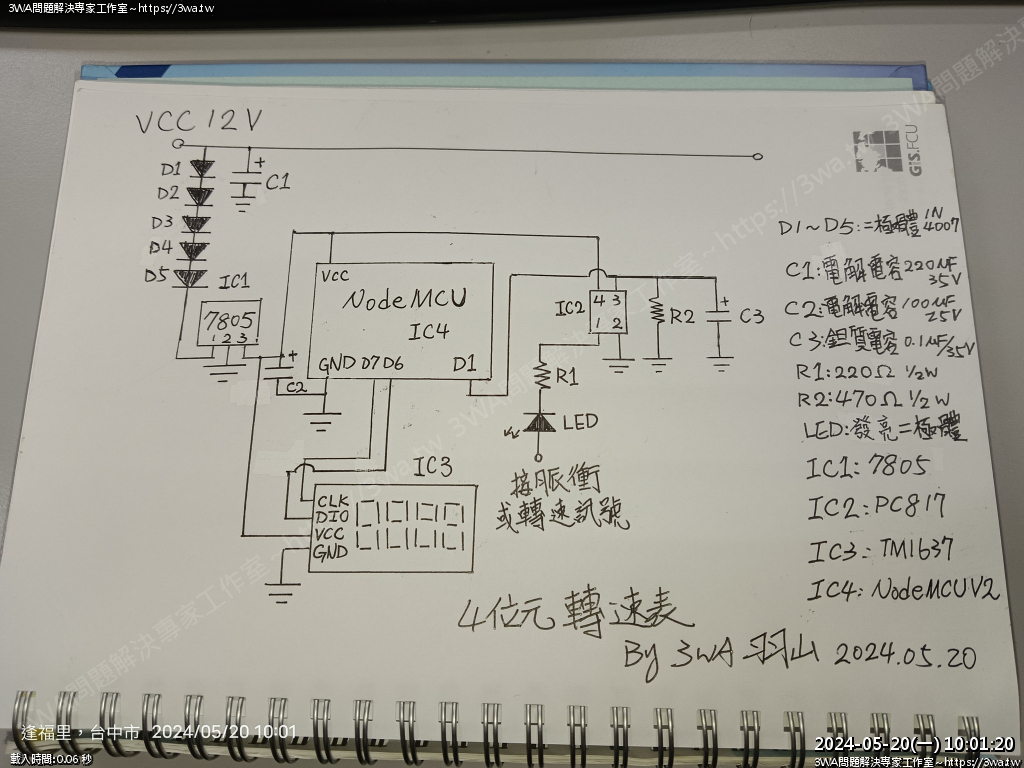 3WA問題解決專家工作室~https://3wa.tw
GIS.FCU
VCC 12V
D1
D2
D3
D4
D5
C1
IC1
7805
1 2 3
C2
VCC
NodeMCU
IC4
GND D7 D6 D1
IC2
4 3
1 2
R2
C3
R1
LED
接脈衝
或轉速訊號
IC3
CLK
DIO
VCC
GND
D1~D5:二極體 1N4007
C1:電解電容 220uF 35V
C2:電解電容 100uF 25V
C3:鉭質電容 0.1uF/35V
R1:220Ω 1/2W
R2:470Ω 1/2W
LED:發亮二極體
IC1:7805
IC2:PC817
IC3:TM1637
IC4:NodeMCUV2
4位元轉速表
By 3WA 羽山 2024.05.20
逢福里,台中市 2024/05/20 10:01
載入時間:0.06 秒
2024-05-20(一) 10:01:20
3WA問題解決專家工作室~https://3wa.tw